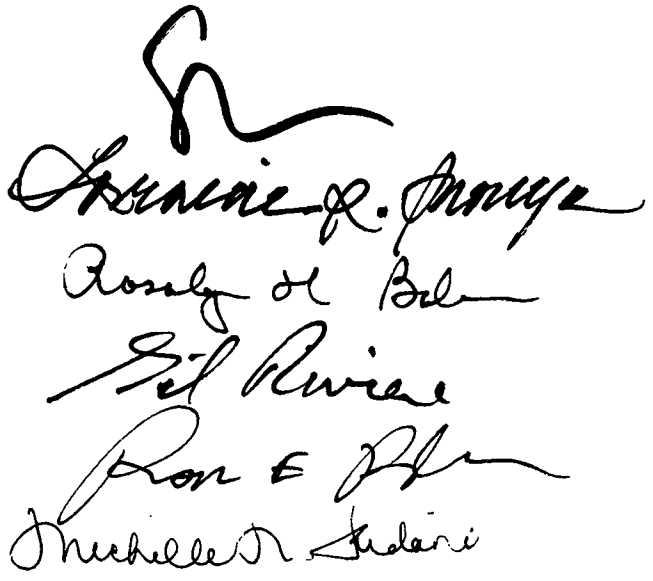 Lorraine R. Inouye
Rosalyn H Baker
Gil Riviere
E
Michelle N. Kidani